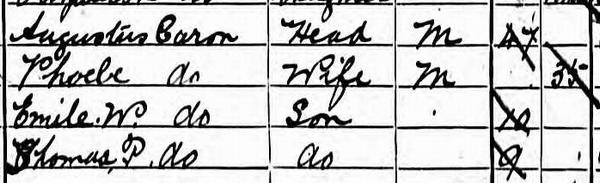 Augustus Caron Head M 47
Phoebe do Wife M 35
Emile. W. do Son 10
Thomas, P. do do 9